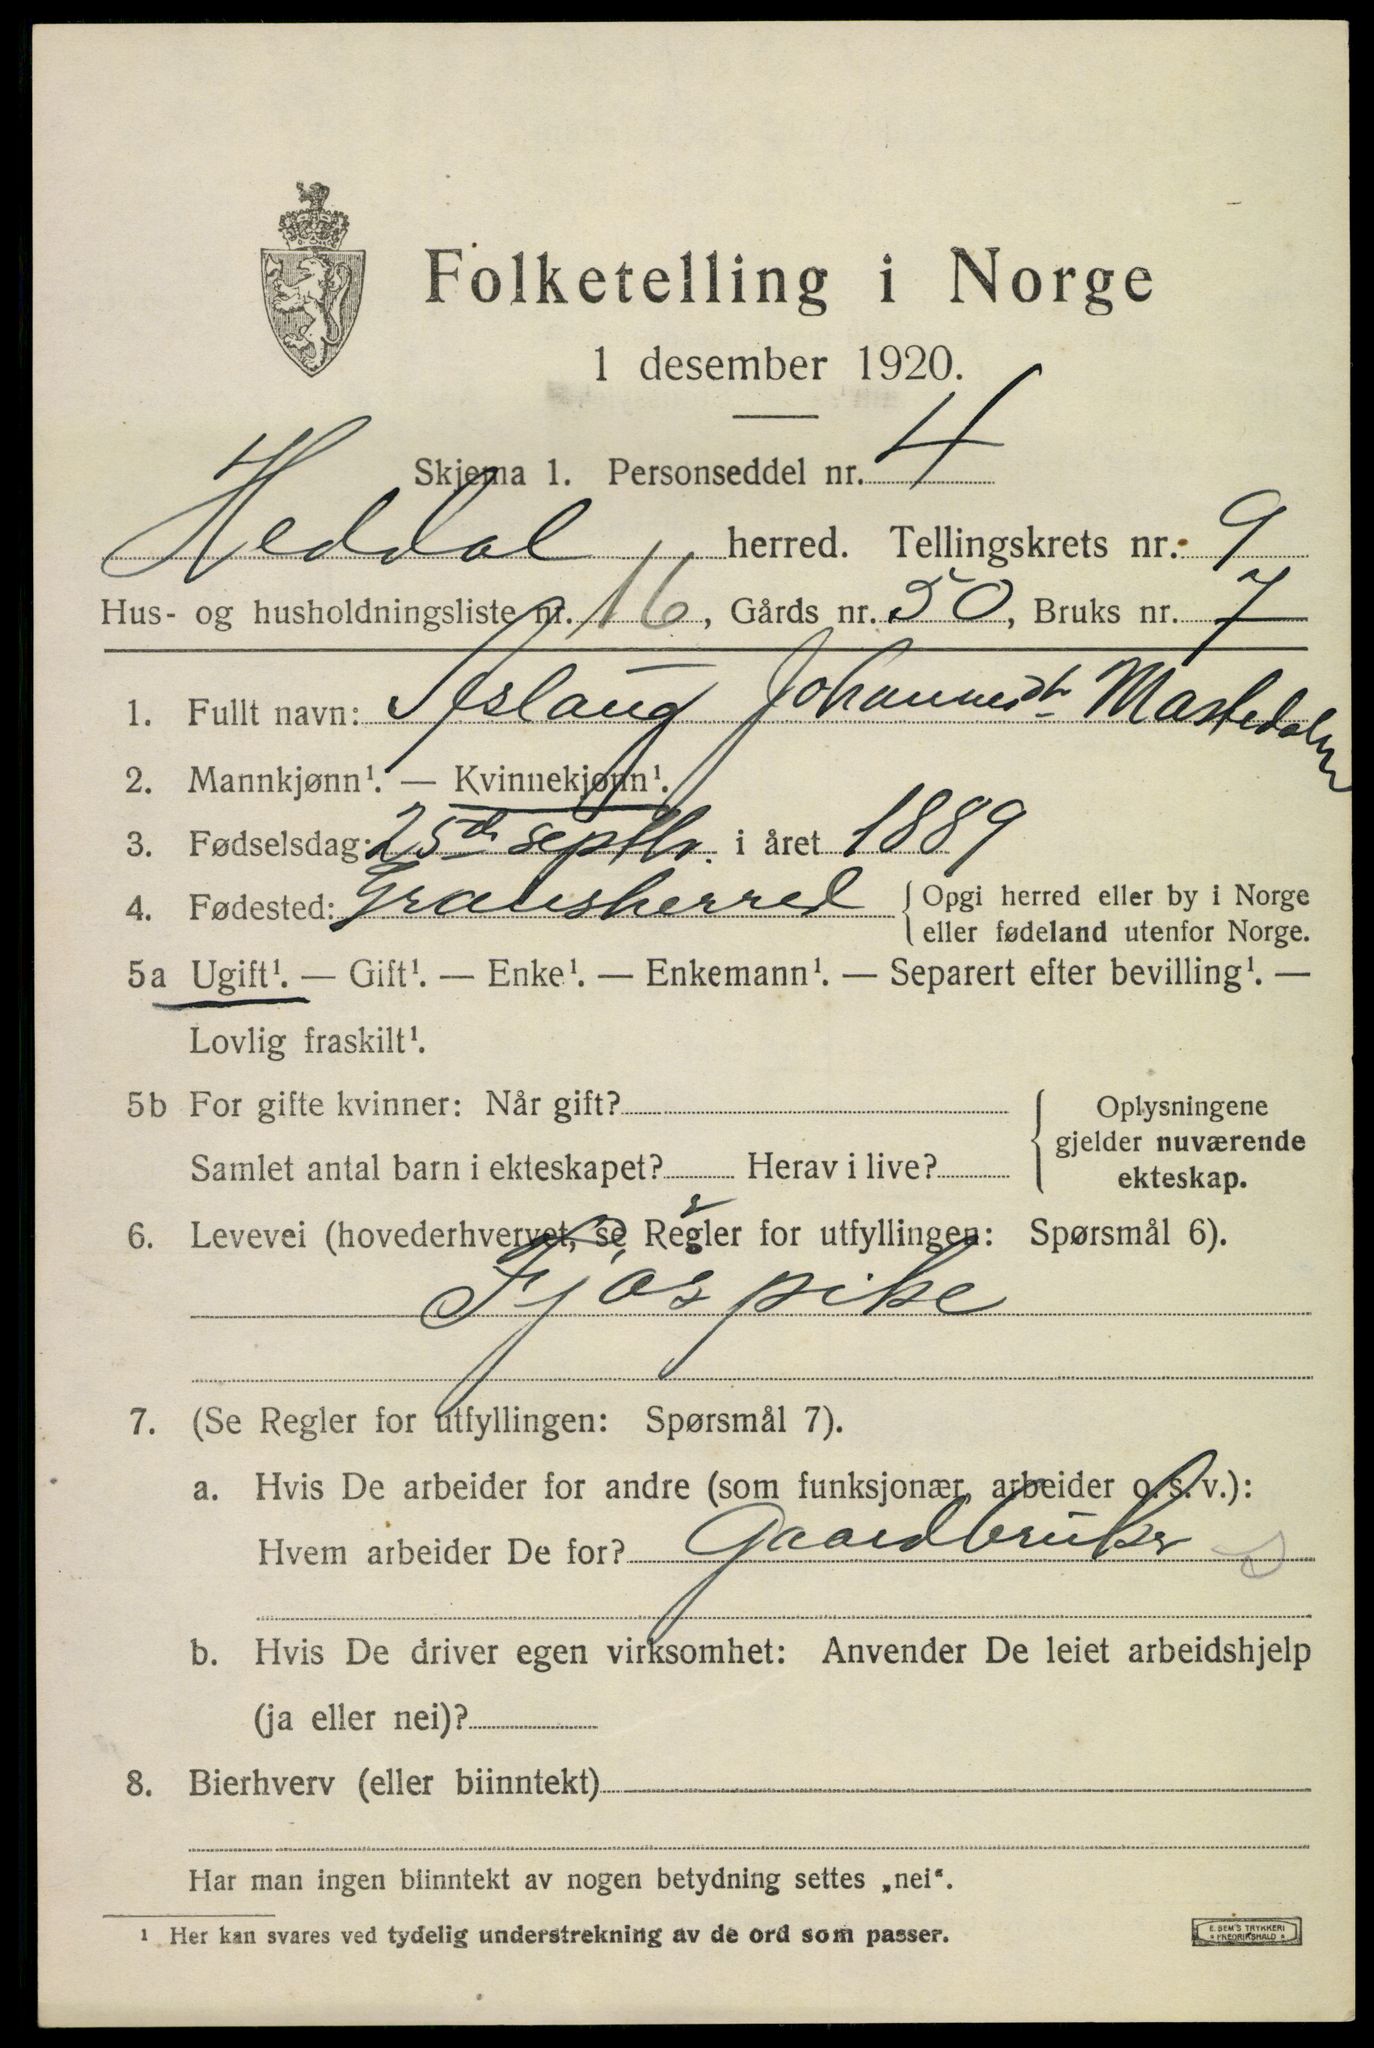 Folketelling i Norge
1 desember 1920.
Skjema 1. Personseddel nr. 4
Heddal herred. Tellingskrets nr. 9
Hus- og husholdningsliste nr. 16, Gårds nr. 50, Bruks nr. 7
1. Fullt navn: Aslaug Johannesdtr Mastedalen
2. Mannkjønn¹. — Kvinnekjønn¹.
3. Fødselsdag: 25de septbr. i året 1889
4. Fødested: Gransherred { Opgi herred eller by i Norge
eller fødeland utenfor Norge.
5a Ugift¹. — Gift¹. — Enke¹. — Enkemann¹. — Separert efter bevilling¹. —
Lovlig fraskilt¹.
5b For gifte kvinner: Når gift?
Samlet antal barn i ekteskapet? Herav i live?
Oplysningene
gjelder nuværende
ekteskap.
6. Levevei (hovederhvervet, se Regler for utfyllingen: Spørsmål 6).
Fjøspike
7. (Se Regler for utfyllingen: Spørsmål 7).
a. Hvis De arbeider for andre (som funksjonær, arbeider o. s. v.):
Hvem arbeider De for? Gaardbruker
b. Hvis De driver egen virksomhet: Anvender De leiet arbeidshjelp
(ja eller nei)?
8. Bierhverv (eller biinntekt)
Har man ingen biinntekt av nogen betydning settes „nei“.
¹ Her kan svares ved tydelig understrekning av de ord som passer.
E. SEM'S TRYKKERI
* FREDRIKSHALD *